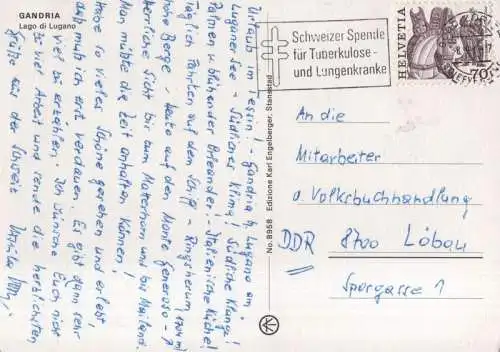 GANDRIA
Lago di Lugano
Urlaub im Tessin! - Gandria b. Lugano am
Luganer See - Südliches Klima! Südliche Klänge!
Palmen u. blühender Oleander! - Italienische Küche!
Täglich Fahrten auf dem Schiff - Ringsherum
hohe Berge - heute auf den Monte Generoso - 1704 m!
herrliche Sicht bis zum Matterhorn und bis Mailand.
Man müßte die Zeit anhalten können!
Habe so vieles Schöne gesehen und erlebt,
daß muß ich erst verdauen. Es gibt dann sehr
viel zu erzählen. Ich wünsche Euch nicht
zu viel Arbeit und sende die herzlichsten
Grüße aus der Schweiz
No. 8958 Edizione Karl Engelberger, Stansstad
Schweizer Spende
für Tuberkulose-
und Lungenkranke
HELVETIA
70
An die
Mitarbeiter
d. Volksbuchhandlung
DDR 8700 Löbau
Sporgasse 1